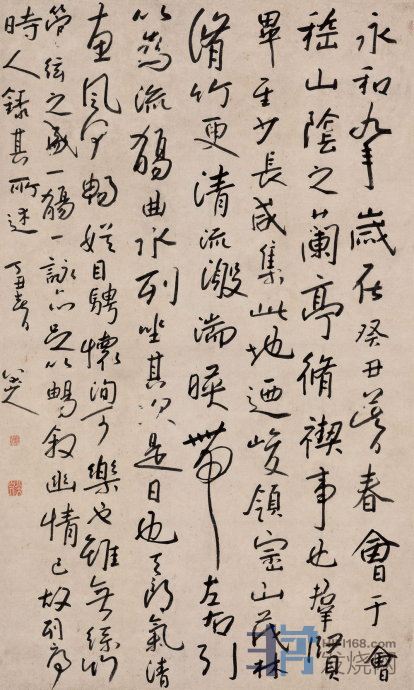 永和九年歲在癸丑暮春會于會
稽山陰之蘭亭脩禊事也羣賢
畢至少長咸集此地迺峻領崇山茂林
脩竹更清流激湍暎帶左右引
以為流觴曲水列坐其次是日也天朗氣清
惠風和暢娛目騁懷洵可樂也雖無絲竹
管弦之盛一觴一詠亦足以暢敘幽情已故列序
時人錄其所述
丁丑春日
八大山人
发烧网